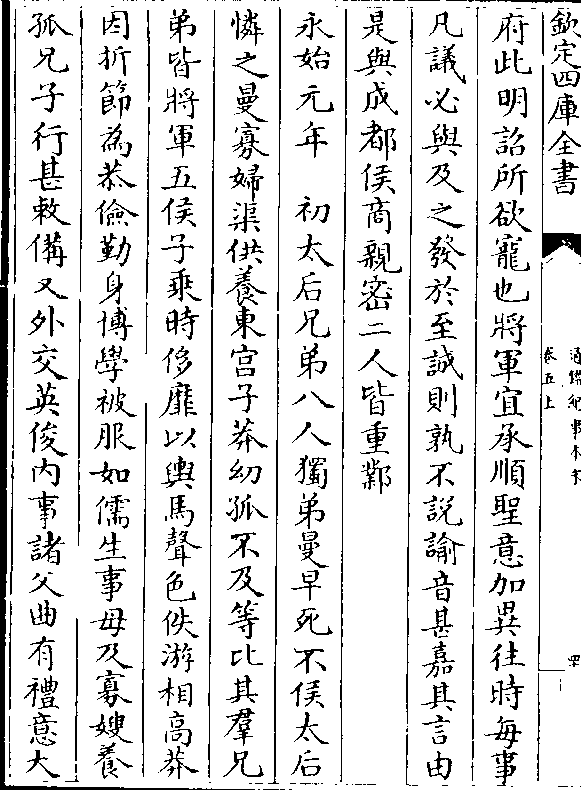 欽定四庫全書
通鑑紀事本末
卷五上
府此明詔所欲寵也將軍宜承順聖意加異往時每事
凡議必與及之發於至誠則孰不説諭音甚嘉其言由
是與成都侯商親密二人皆重鄴
永始元年　初太后兄弟八人獨弟曼早死不侯太后
憐之曼寡婦渠供養東宫子莽幼孤不及等比其羣兄
弟皆將軍五侯子乘時侈靡以輿馬聲色佚游相高莽
因折節為恭儉勤身博學被服如儒生事母及寡嫂養
孤兄子行甚敕備又外交英俊内事諸父曲有禮意大